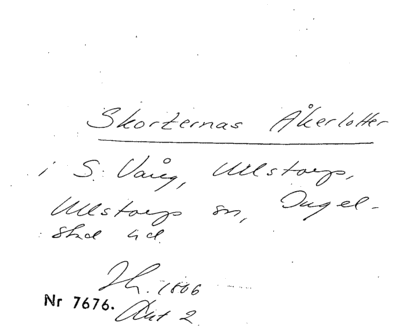 Skorternas Åkerlotter
i S. Vång, Ullstorp,
Ullstorps sn, Ingel-
stad hd.
1866
Nr 7676. Akt 2